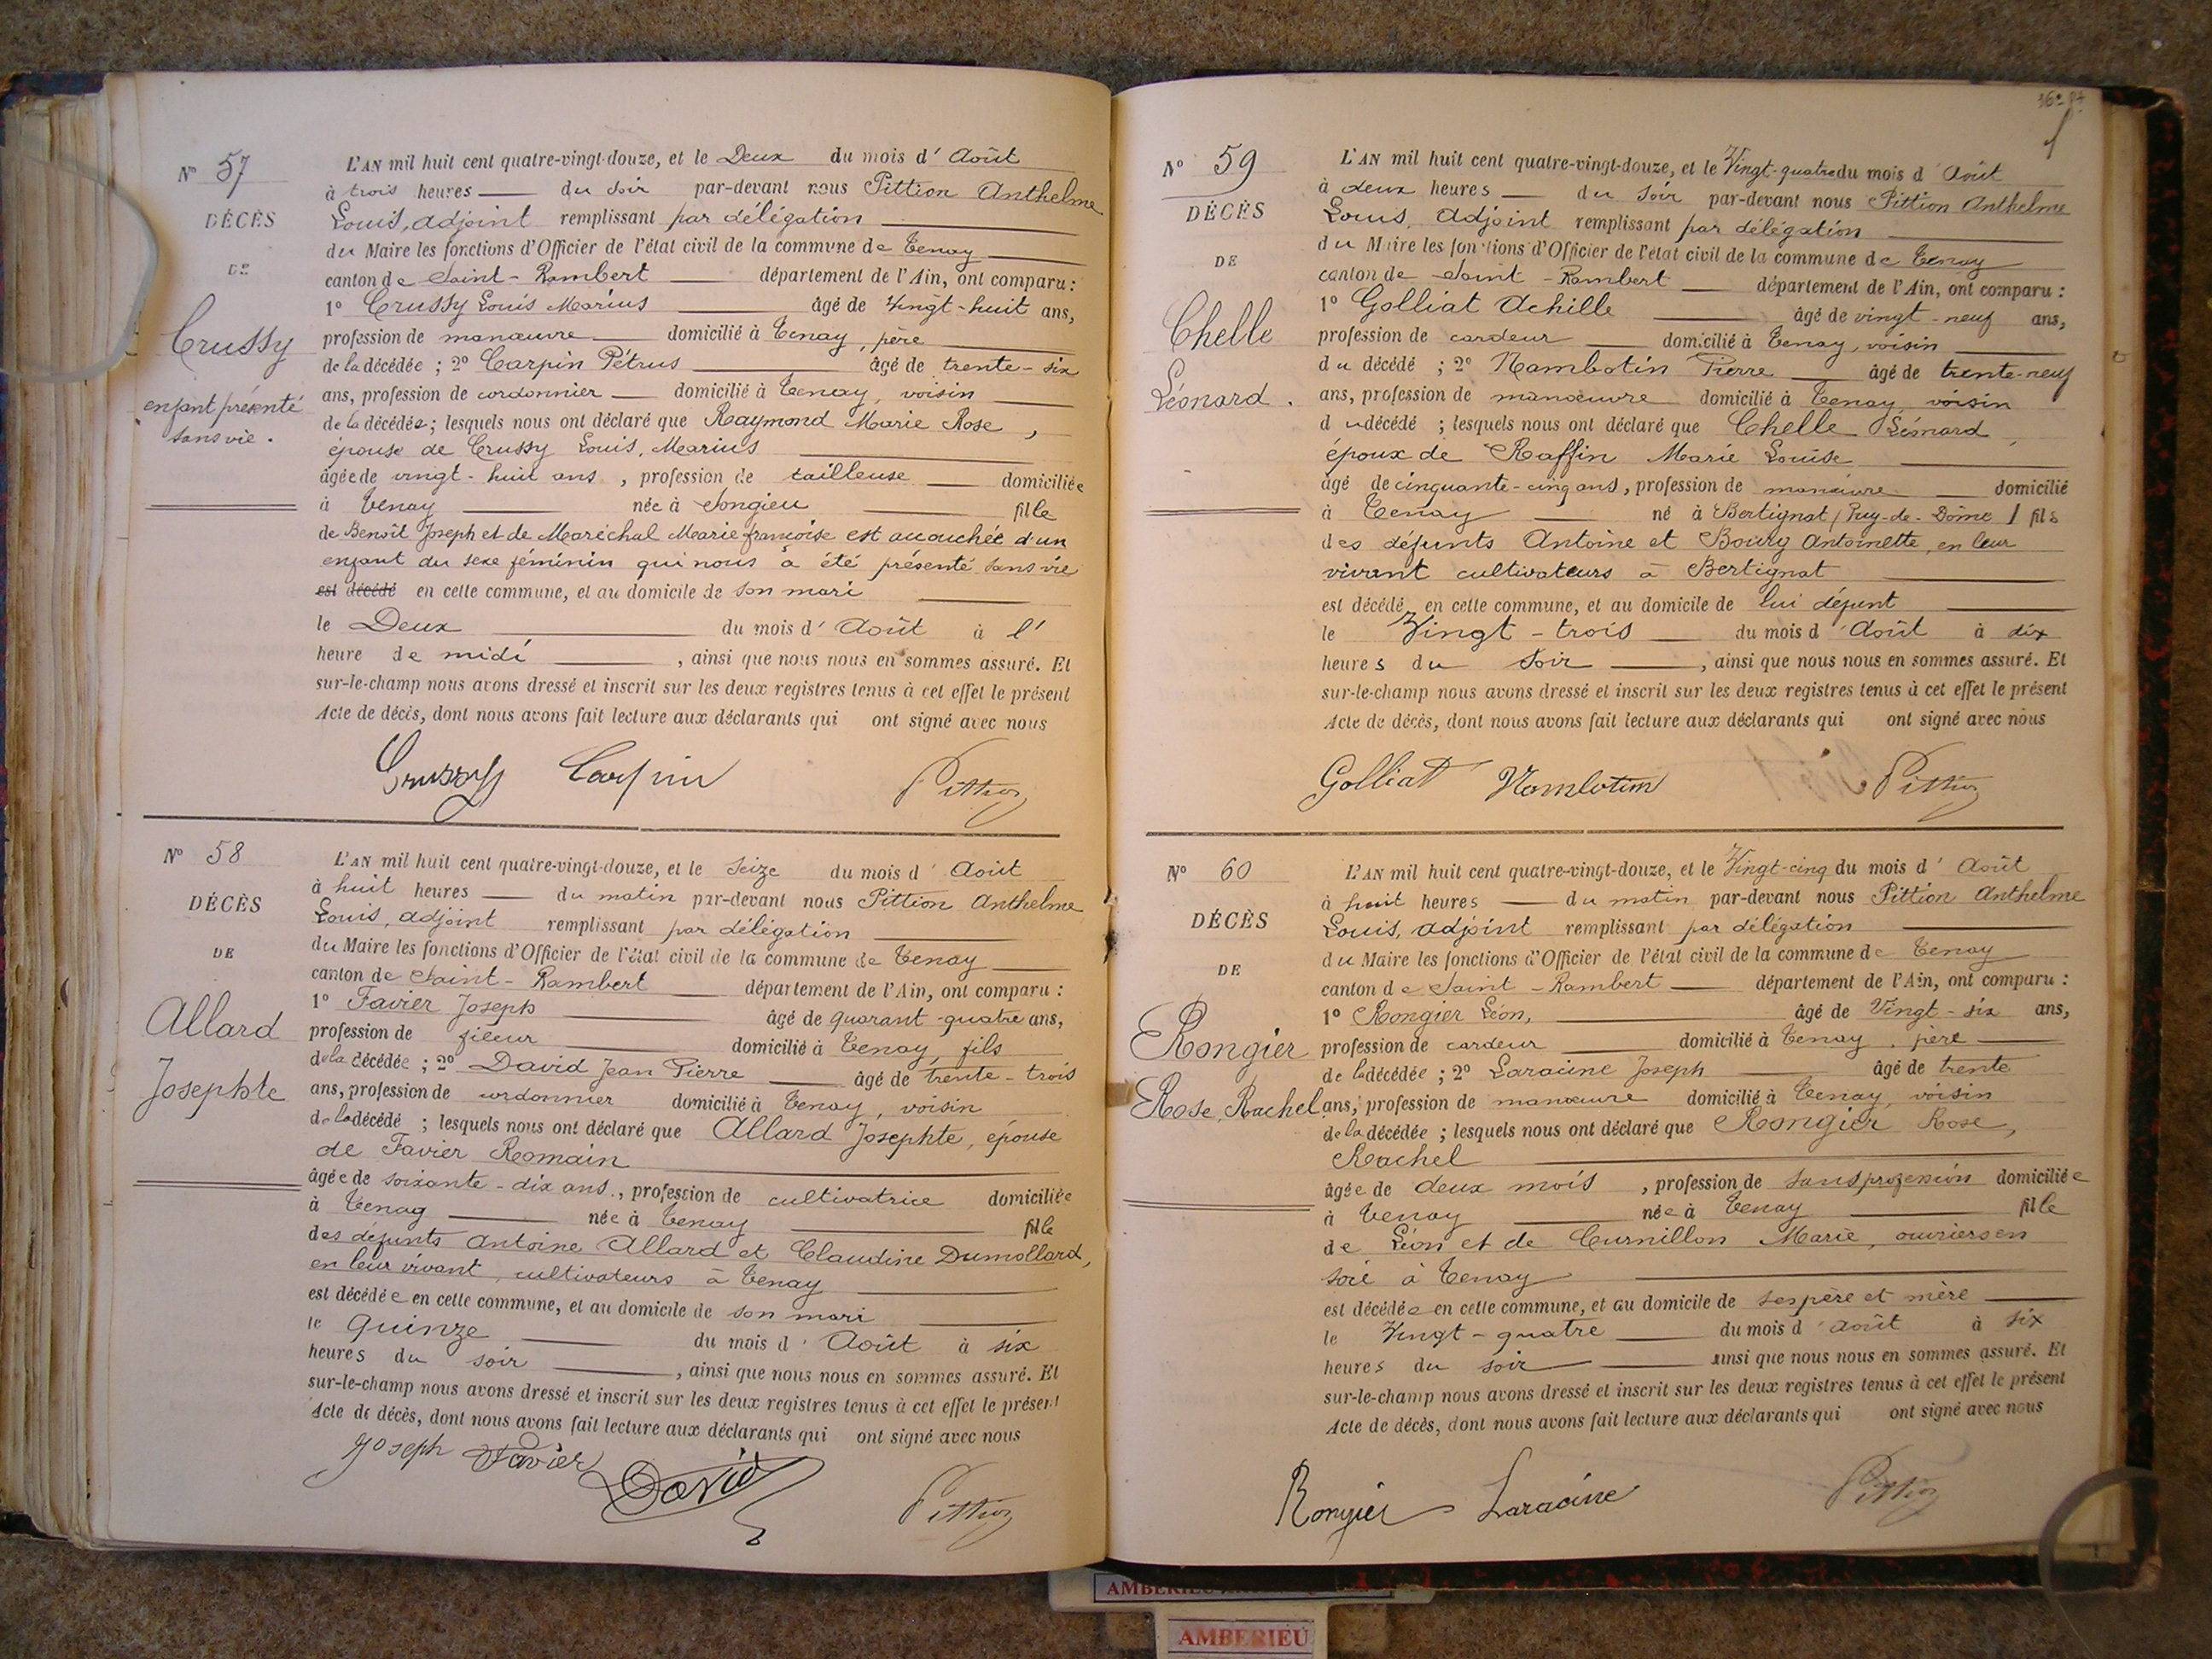 Nº 57
DÉCÈS
DE
Crussy
enfant présenté
sans vie.
L'AN mil huit cent quatre-vingt-douze, et le Deux du mois d'Août
à trois heures du soir par-devant nous Pittion Anthelme
Louis, adjoint remplissant par délégation
du Maire les fonctions d'Officier de l'état civil de la commune de Tenay
canton de Saint-Rambert département de l'Ain, ont comparu :
1º Crussy Louis Marius âgé de vingt-huit ans,
profession de manœuvre domicilié à Tenay, père
de la décédée ; 2º Carpin Pétrus âgé de trente-six
ans, profession de cordonnier domicilié à Tenay, voisin
de la décédée ; lesquels nous ont déclaré que Raymond Marie Rose,
épouse de Crussy Louis, Marius
âgée de vingt-huit ans, profession de tailleuse domiciliée
à Tenay née à Songieu fille
de Benoît Joseph et de Maréchal Marie françoise est accouchée d'un
enfant du sexe féminin qui nous a été présenté sans vie
est décédé en cette commune, et au domicile de son mari
le Deux du mois d'Août à l'
heure de midi, ainsi que nous nous en sommes assuré. Et
sur-le-champ nous avons dressé et inscrit sur les deux registres tenus à cet effet le présent
Acte de décès, dont nous avons fait lecture aux déclarants qui ont signé avec nous
Crussy Carpin Pittion
Nº 58
DÉCÈS
DE
Allard
Josephte
L'AN mil huit cent quatre-vingt-douze, et le Seize du mois d'Août
à huit heures du matin par-devant nous Pittion Anthelme
Louis, adjoint remplissant par délégation
du Maire les fonctions d'Officier de l'état civil de la commune de Tenay
canton de Saint-Rambert département de l'Ain, ont comparu :
1º Favier Joseph âgé de quarant-quatre ans,
profession de fileur domicilié à Tenay, fils
de la décédée ; 2º David Jean Pierre âgé de trente-trois
ans, profession de cordonnier domicilié à Tenay, voisin
de la décédé ; lesquels nous ont déclaré que Allard Josephte, épouse
de Favier Romain
âgée de soixante-dix ans, profession de cultivatrice domiciliée
à Tenay née à Tenay fille
des défunts Antoine Allard et Claudine Dumollard,
en leur vivant, cultivateurs à Tenay
est décédée en cette commune, et au domicile de son mari
le quinze du mois d'Août à six
heures du soir, ainsi que nous nous en sommes assuré. Et
sur-le-champ nous avons dressé et inscrit sur les deux registres tenus à cet effet le présent
Acte de décès, dont nous avons fait lecture aux déclarants qui ont signé avec nous
Joseph Favier David Pittion
Nº 59
DÉCÈS
DE
Chelle
Léonard.
L'AN mil huit cent quatre-vingt-douze, et le Vingt-quatre du mois d'Août
à deux heures du soir par-devant nous Pittion Anthelme
Louis, adjoint remplissant par délégation
du Maire les fonctions d'Officier de l'état civil de la commune de Tenay
canton de Saint-Rambert département de l'Ain, ont comparu :
1º Golliat Achille âgé de vingt-neuf ans,
profession de cardeur domicilié à Tenay, voisin
du décédé ; 2º Nambotin Pierre âgé de trente-neuf
ans, profession de manœuvre domicilié à Tenay, voisin
du décédé ; lesquels nous ont déclaré que Chelle Léonard,
époux de Raffin Marie Louise
âgé de cinquante-cinq ans, profession de manœuvre domicilié
à Tenay né à Bertignat (Puy-de-Dôme) fils
des défunts Antoine et Bourg Antoinette, en leur
vivant cultivateurs à Bertignat
est décédé en cette commune, et au domicile de lui défunt
le Vingt-trois du mois d'Août à dix
heures du soir, ainsi que nous nous en sommes assuré. Et
sur-le-champ nous avons dressé et inscrit sur les deux registres tenus à cet effet le présent
Acte de décès, dont nous avons fait lecture aux déclarants qui ont signé avec nous
Golliat Nambotin Pittion
Nº 60
DÉCÈS
DE
Rongier
Rose, Rachel
L'AN mil huit cent quatre-vingt-douze, et le Vingt-cinq du mois d'Août
à huit heures du matin par-devant nous Pittion Anthelme
Louis, adjoint remplissant par délégation
du Maire les fonctions d'Officier de l'état civil de la commune de Tenay
canton de Saint-Rambert département de l'Ain, ont comparu :
1º Rongier Léon, âgé de Vingt-six ans,
profession de cardeur domicilié à Tenay, père
de la décédée ; 2º Laracine Joseph âgé de trente
ans, profession de manœuvre domicilié à Tenay, voisin
de la décédée ; lesquels nous ont déclaré que Rongier Rose,
Rachel
âgée de deux mois, profession de sans profession domiciliée
à Tenay née à Tenay fille
de Léon et de Curnillon Marie, ouvriers en
soie à Tenay
est décédée en cette commune, et au domicile de ses père et mère
le Vingt-quatre du mois d'Août à six
heures du soir ainsi que nous nous en sommes assuré. Et
sur-le-champ nous avons dressé et inscrit sur les deux registres tenus à cet effet le présent
Acte de décès, dont nous avons fait lecture aux déclarants qui ont signé avec nous
Rongier Laracine Pittion
AMBERIEU